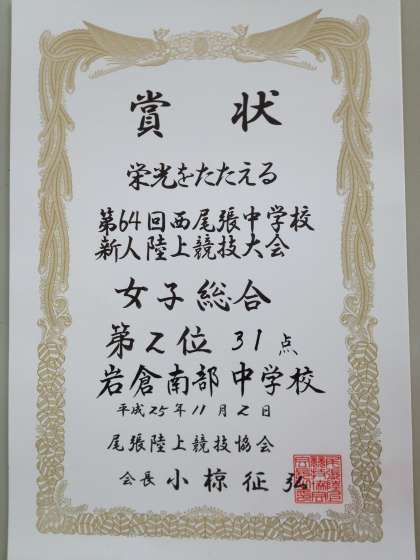 賞状
栄光をたたえる
第64回西尾張中学校
新人陸上競技大会
女子総合
第2位 31点
岩倉南部中学校
平成25年11月2日
尾張陸上競技協会
会長 小椋征弘